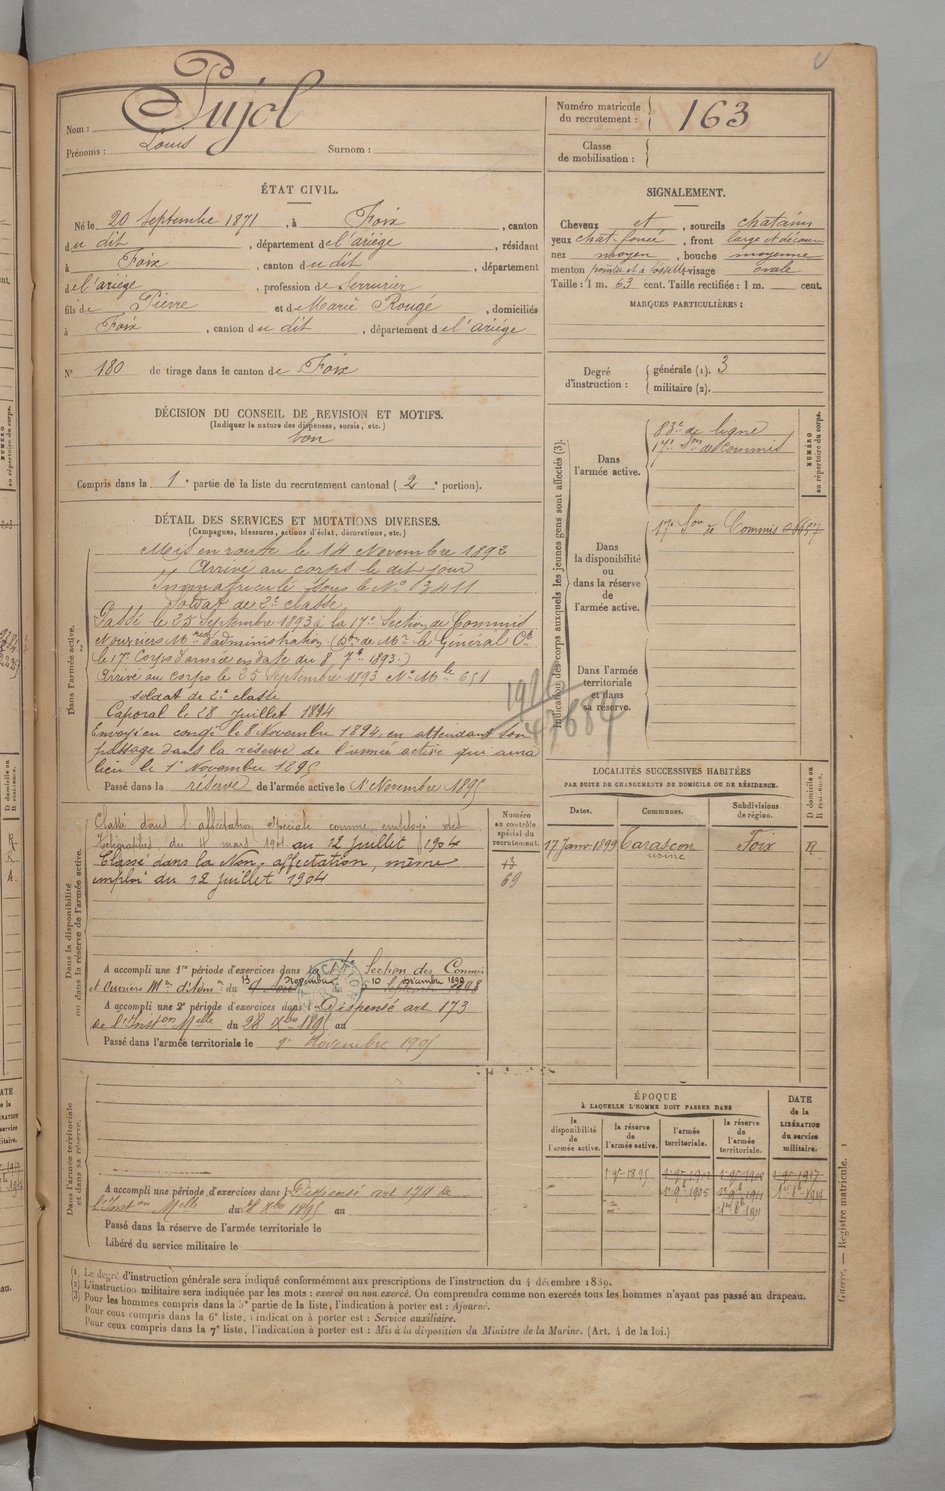 Nom : Pujol
Prénoms : Louis Surnom :
Numéro matricule
du recrutement : 163
Classe
de mobilisation :
ÉTAT CIVIL.
Né le 20 Septembre 1871, à Foix, canton
du dit, département de l'ariège, résidant
à Foix, canton du dit, département
de l'ariège, profession de Serrurier
fils de Pierre et de Marie Rougé, domiciliés
à Foix, canton du dit, département de l'ariège
N° 180 de tirage dans le canton de Foix
SIGNALEMENT.
Cheveux et, sourcils chatains
yeux chat. foncé, front large et décou
nez moyen, bouche moyenne
menton visage ovale
Taille : 1 m. 63 cent. Taille rectifiée : 1 m. cent.
MARQUES PARTICULIÈRES :
Degré
d'instruction :
générale (1). 3
militaire (2).
DÉCISION DU CONSEIL DE REVISION ET MOTIFS.
(Indiquer la nature des dispenses, sursis, etc.)
bon
Compris dans la 1e partie de la liste du recrutement cantonal (2e portion).
DÉTAIL DES SERVICES ET MUTATIONS DIVERSES.
(Campagnes, blessures, actions d'éclat, décorations, etc.)
Dans l'armée active.
Mis en route le 14 Novembre 1892
Arrivé au corps le dit jour
Immatriculé sous le N° 3411
Soldat de 2e classe
Passé le 25 Septembre 1893 à la 17e Section de Commis
et ouvriers Mres d'administration (Don de Mr le Général Ct
le 17e Corps d'armée en date du 8 7bre 1893.)
Arrivé au corps le 25 Septembre 1893 N° Mle 651
soldat de 2e classe
Caporal le 28 Juillet 1894
Envoyé en congé le 8 Novembre 1894, en attendant son
passage dans la réserve de l'armée active qui aura
lieu le 1er Novembre 1895
Passé dans la réserve de l'armée active le 1er Novembre 1895
Indication des corps auxquels les jeunes gens sont affectés (3).
NUMÉRO
au répertoire du corps.
Dans
l'armée active.
83e de ligne
17e Son de Commis
Dans
la disponibilité
ou
dans la réserve
de
l'armée active.
17e Son de Commis
Dans l'armée
territoriale
et dans
sa réserve.
47684
Dans la disponibilité
ou dans la réserve de l'armée active.
Numéro
au contrôle
spécial du
recrutement.
Classé dans l'affectation spéciale comme employé des
Télégraphes, du 4 mars 1901 au 12 Juillet 1904
Classé dans la Non-affectation, même
emploi du 12 Juillet 1904
13
69
A accompli une 1re période d'exercices dans la 17e Section des Commis
et Ouvriers Mres d'Adon du 13 novembre 10 décembre 1898
A accompli une 2e période d'exercices dans Dispensé art 173
de l'Inston Melle du 28 Xbre 1895 au
Passé dans l'armée territoriale le 1er Novembre 1905
LOCALITÉS SUCCESSIVES HABITÉES
PAR SUITE DE CHANGEMENTS DE DOMICILE OU DE RÉSIDENCE.
D domicile ou
R résidence.
Dates. Communes. Subdivisions
de région.
17 Janv 1899 Tarascon Foix R
usine
Dans l'armée territoriale
et dans sa réserve.
A accompli une période d'exercices dans Dispensé art 174 de
l'Inston Melle du 28 Xbre 1895 au
Passé dans la réserve de l'armée territoriale le
Libéré du service militaire le
ÉPOQUE
À LAQUELLE L'HOMME DOIT PASSER DANS
DATE
de la
LIBÉRATION
du service
militaire.
la
disponibilité
de
l'armée active.
la réserve
de
l'armée active.
l'armée
territoriale.
la réserve
de
l'armée
territoriale.
1er 9bre 1895
1er 9bre 1905 1er 9bre 1911
1er 8bre 1911
(1) Le degré d'instruction générale sera indiqué conformément aux prescriptions de l'instruction du 4 décembre 1889.
(2) L'instruction militaire sera indiquée par les mots : exercé ou non exercé. On comprendra comme non exercés tous les hommes n'ayant pas passé au drapeau.
(3) Pour les hommes compris dans la 5e partie de la liste, l'indication à porter est : Ajourné.
Pour ceux compris dans la 6e liste, l'indication à porter est : Service auxiliaire.
Pour ceux compris dans la 7e liste, l'indication à porter est : Mis à la disposition du Ministre de la Marine. (Art. 4 de la loi.)
Guerre. — Registre matricule. 1